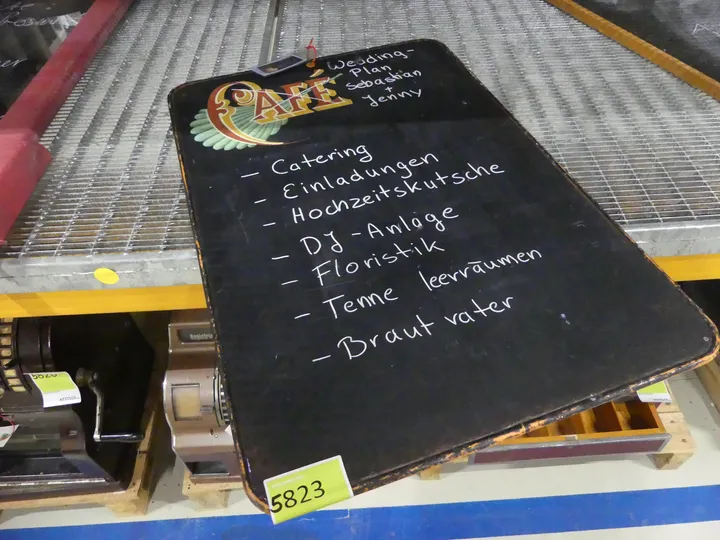 CAFÉ
Wedding-
Plan
Sebastian
+
Jenny
- Catering
- Einladungen
- Hochzeitskutsche
- DJ-Anlage
- Floristik
- Tenne leerräumen
- Braut vater
5823